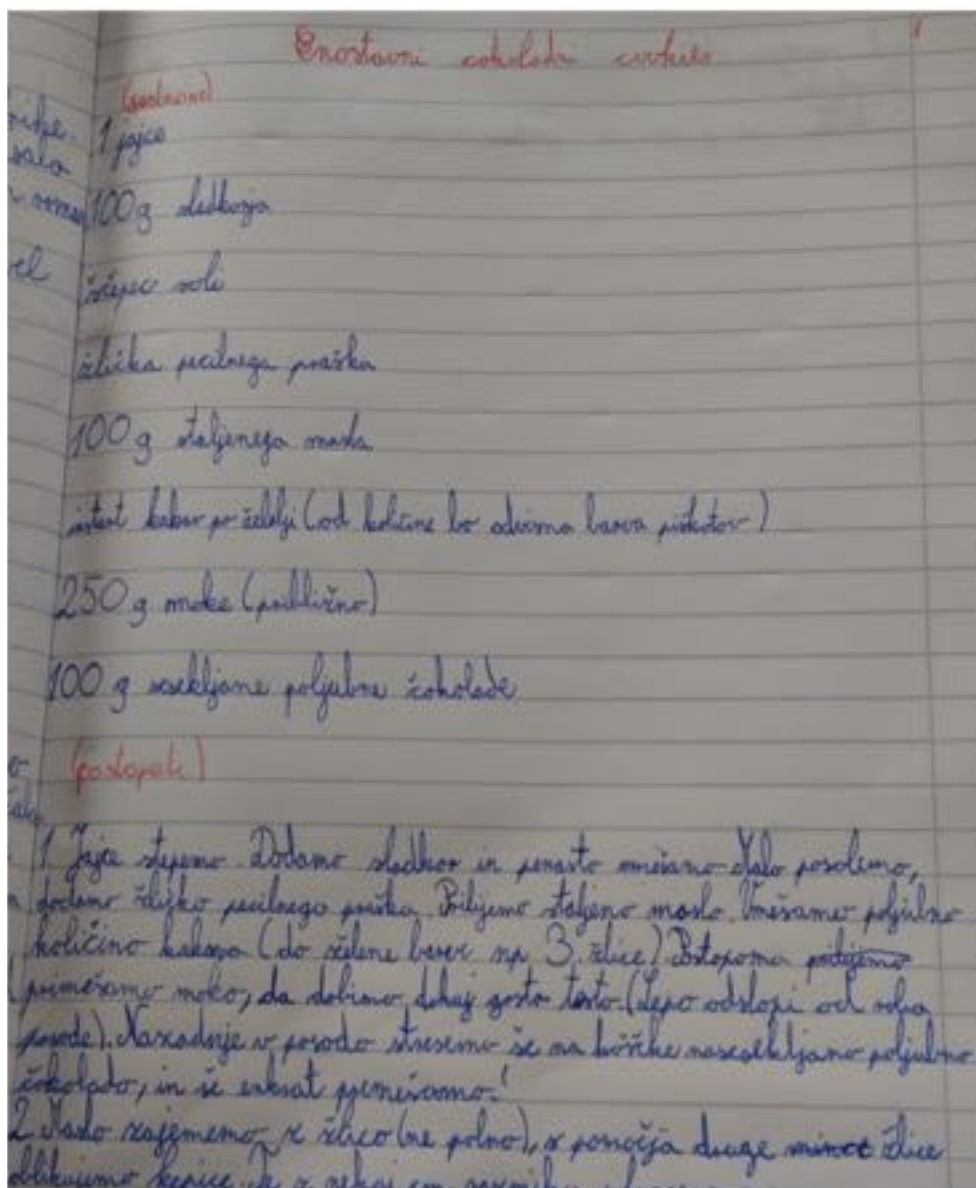 Enostavni čokoladni
(sestavine)
1 jajce
100g sladkorja
ščepec soli
žlička pecilnega praška
100 g staljenega masla
instant kakav po želelji (od količine bo odvisna barva piškotov)
250 g moke (približno)
100 g sesekljane poljubne čokolade
(postopek)
1 Jajce stepemo Dodamo sladkor in penasto mešamo Malo posolimo,
dodamo žličko pecilnega praška. Prilijemo staljeno maslo. Vmešamo poljubno
količino kakava (do želene barve np 3 žlice) Postopoma
premešamo moko, da dobimo dokaj gosto testo (Lepo odstopi od roba
posode). Nazadnje v posodo stresemo še na koščke nasesekljano poljubno
čokolado, in še enkrat premešamo!
2 zajememo z žlico (ne polno), s pomočjo druge žlice
oblikujemo kepice